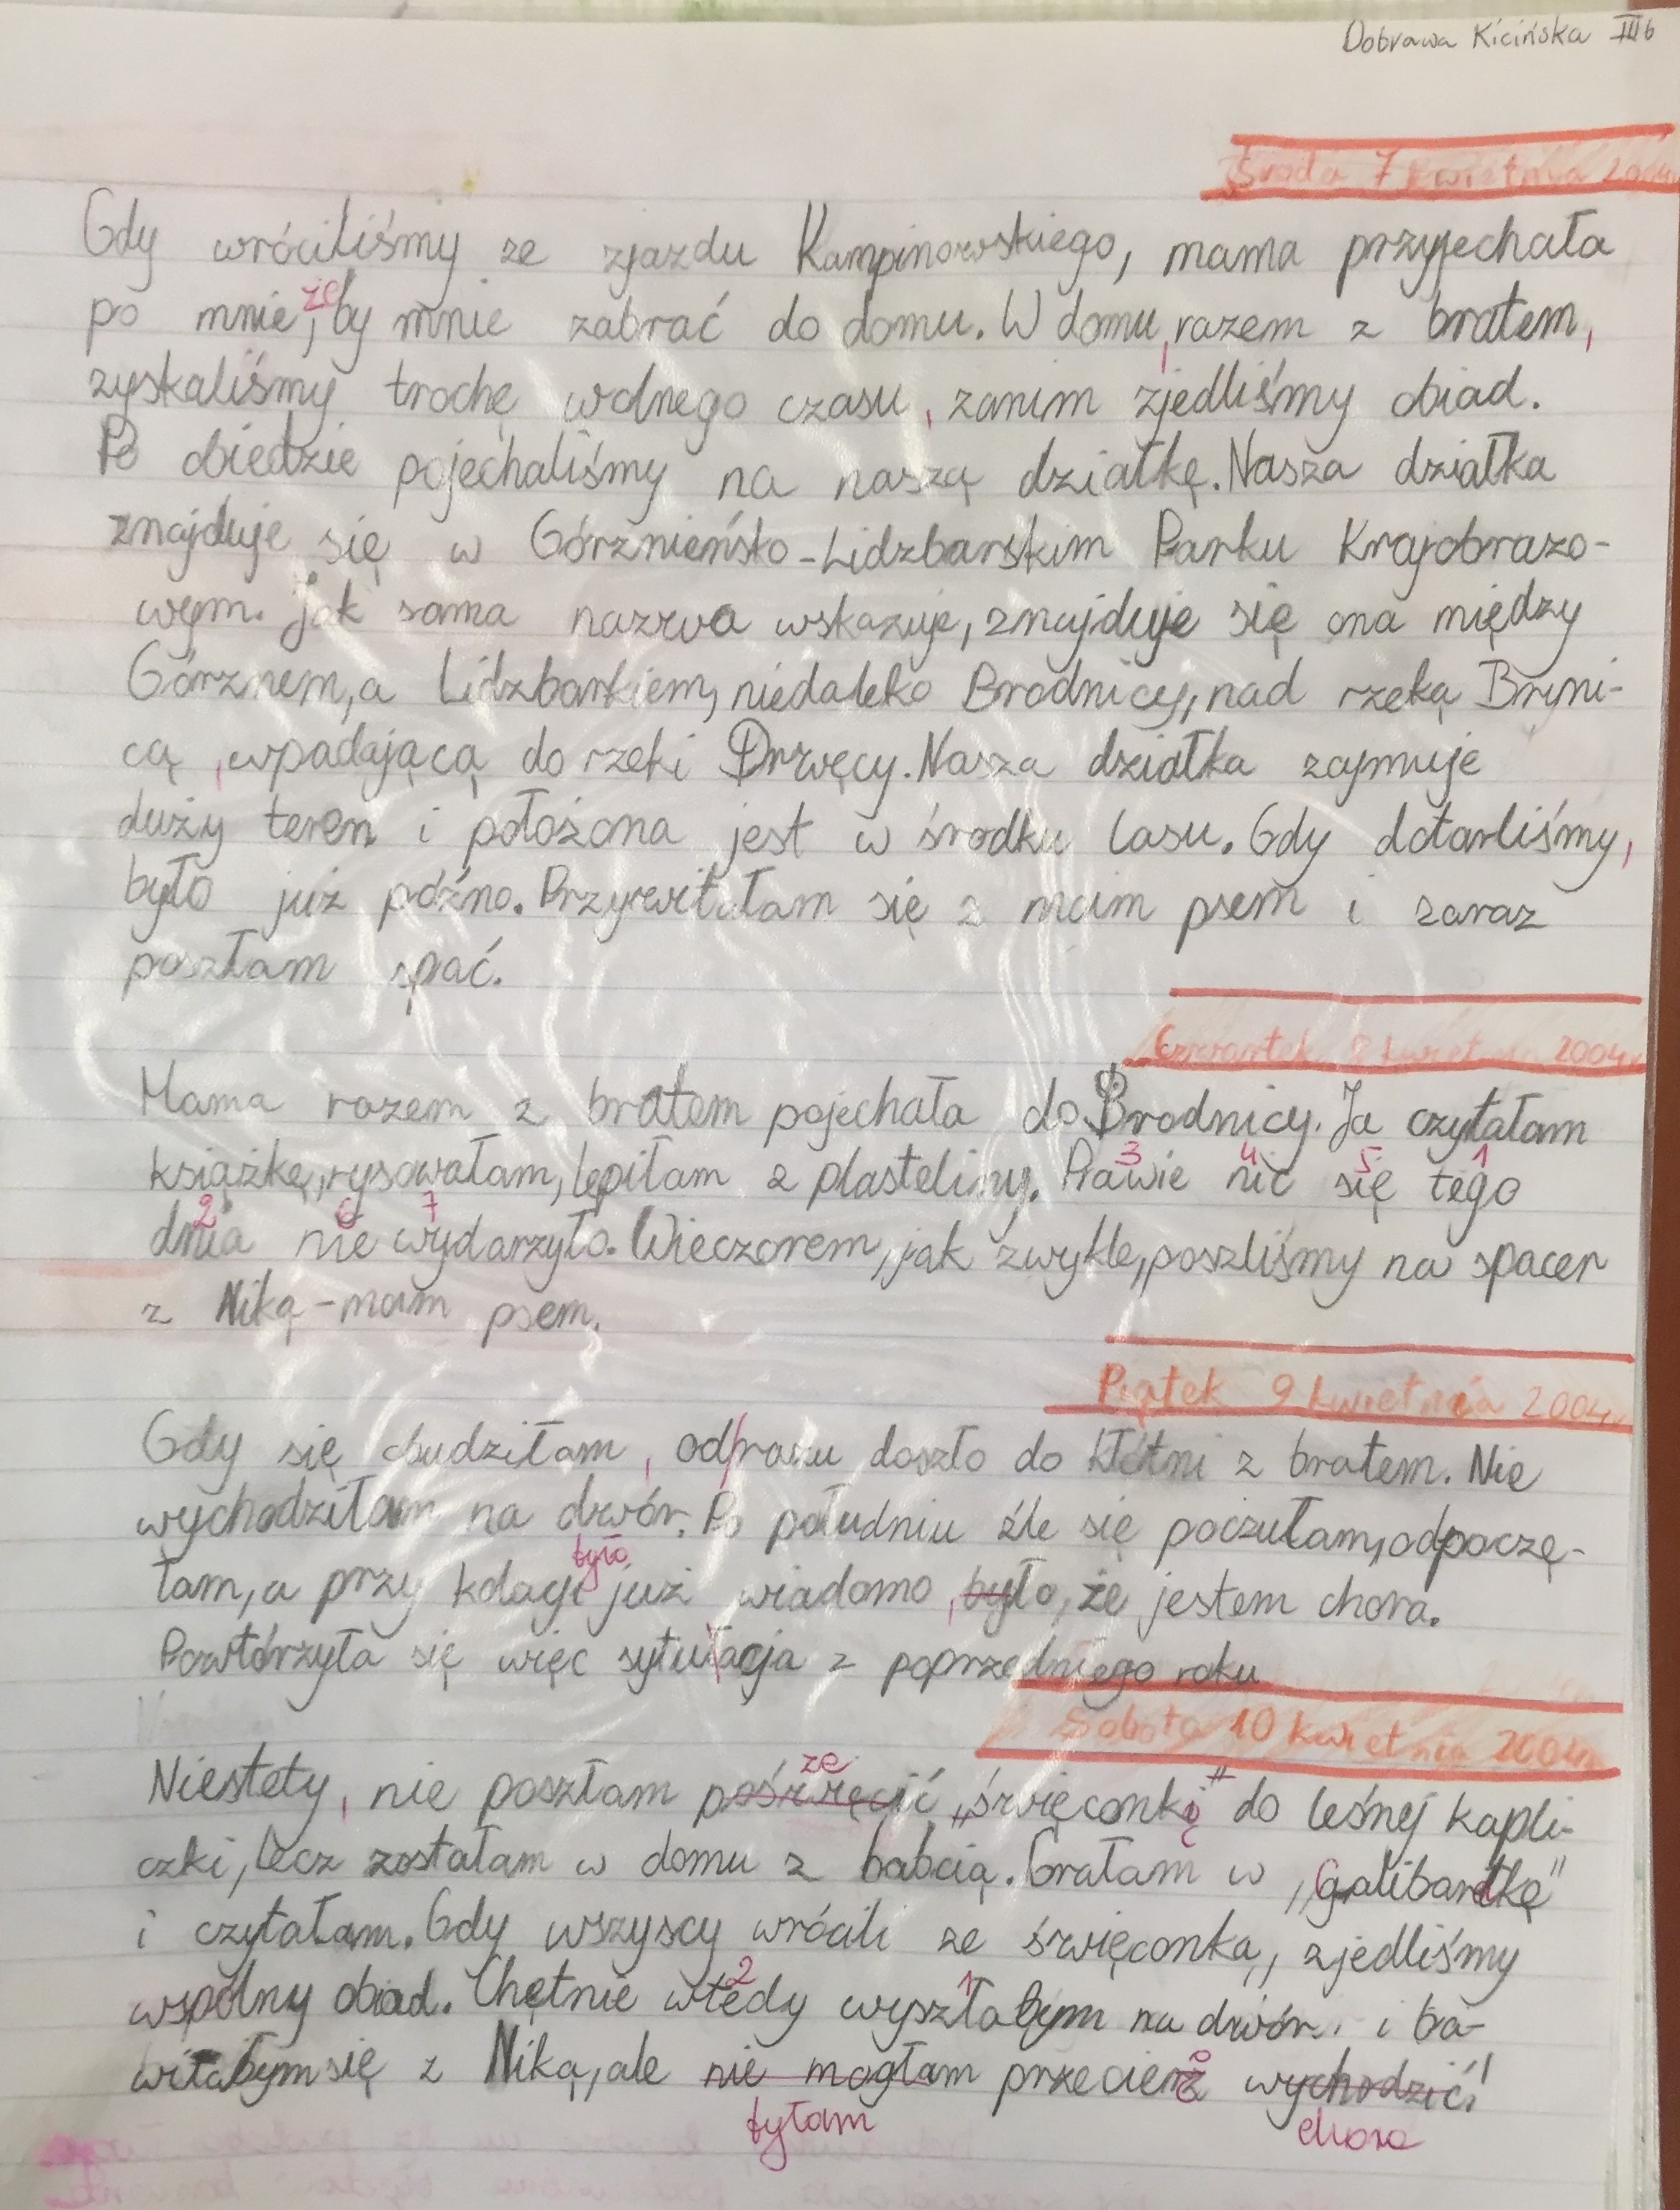 Dobrawa Kicińska III b
Środa 7 kwietnia 2004r.
Gdy wróciliśmy ze zjazdu Kampinowskiego, mama przyjechała
po mnie, żeby mnie zabrać do domu. W domu, razem z bratem,
zyskaliśmy trochę wolnego czasu, zanim zjedliśmy obiad.
Po obiedzie pojechaliśmy na naszą działkę. Nasza działka
znajduje się w Górznieńsko-Lidzbarskim Parku Krajobrazo-
wym. Jak sama nazwa wskazuje, znajduje się ona między
Górznem, a Lidzbarkiem, niedaleko Brodnicy, nad rzeką Bryni-
cą, wpadającą do rzeki Drwęcy. Nasza działka zajmuje
duży teren i położona jest w środku lasu. Gdy dotarliśmy,
było już późno. Przywitałam się z moim psem i zaraz
poszłam spać.
Czwartek 8 kwietnia 2004r.
Mama razem z bratem pojechała do Brodnicy. Ja czytałam
3 4 5 1
książkę, rysowałam, lepiłam z plasteliny. Prawie nic się tego
2 6 7
dnia nie wydarzyło. Wieczorem, jak zwykle, poszliśmy na spacer
z Niką - moim psem.
Piątek 9 kwietnia 2004r.
Gdy się obudziłam, od razu doszło do kłótni z bratem. Nie
wychodziłam na dwór. Po południu źle się poczułam, odpoczę-
było
łam, a przy kolacji już wiadomo, było, że jestem chora.
Powtórzyła się więc sytuacja z poprzedniego roku
Sobota 10 kwietnia 2004r.
ze
Niestety, nie poszłam poświęcić „święconką" do leśnej kapli-
czki, lecz zostałam w domu z babcią. Grałam w „Galibardkę"
i czytałam. Gdy wszyscy wrócili ze święconką, zjedliśmy
2 1
wspólny obiad. Chętnie wtedy wyszłabym na dwór i ba-
wiłabym się z Niką, ale nie mogłam przecież wychodzić!
byłam chora